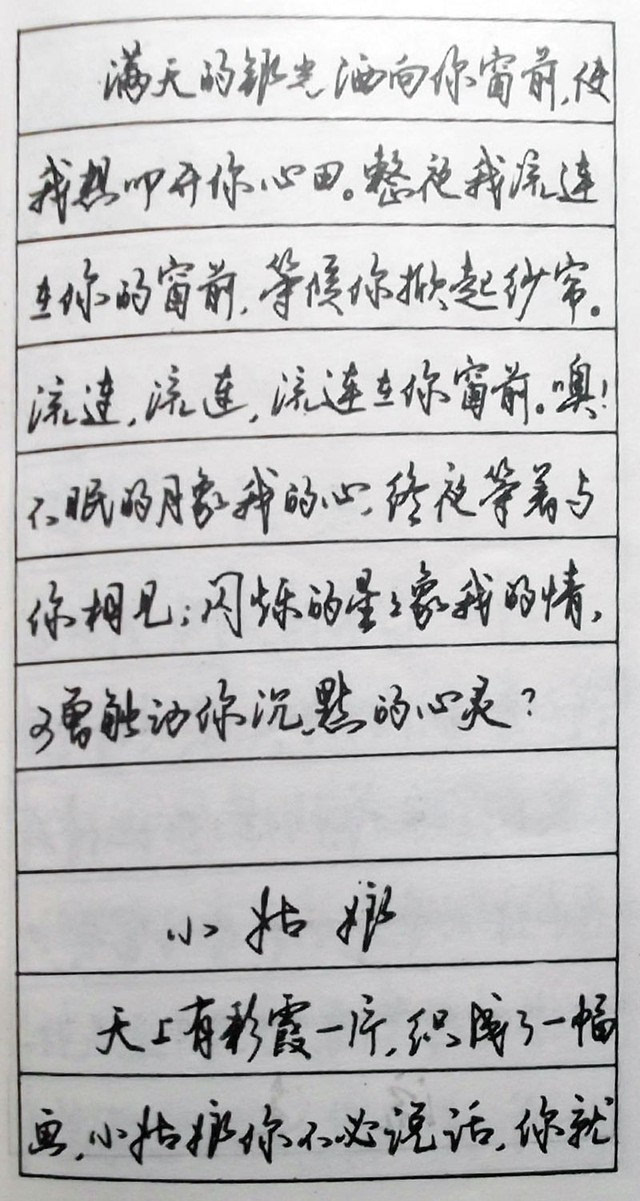 满天的银光洒向你窗前,使
我想叩开你心田。整夜我流连
在你的窗前,等候你掀起纱帘。
流连,流连,流连在你窗前。噢!
不眠的月象我的心,终夜等着与
你相见;闪烁的星星象我的情,
可曾触动你沉默的心灵?
小姑娘
天上有彩霞一片,织成了一幅
画,小姑娘你不必说话,你就